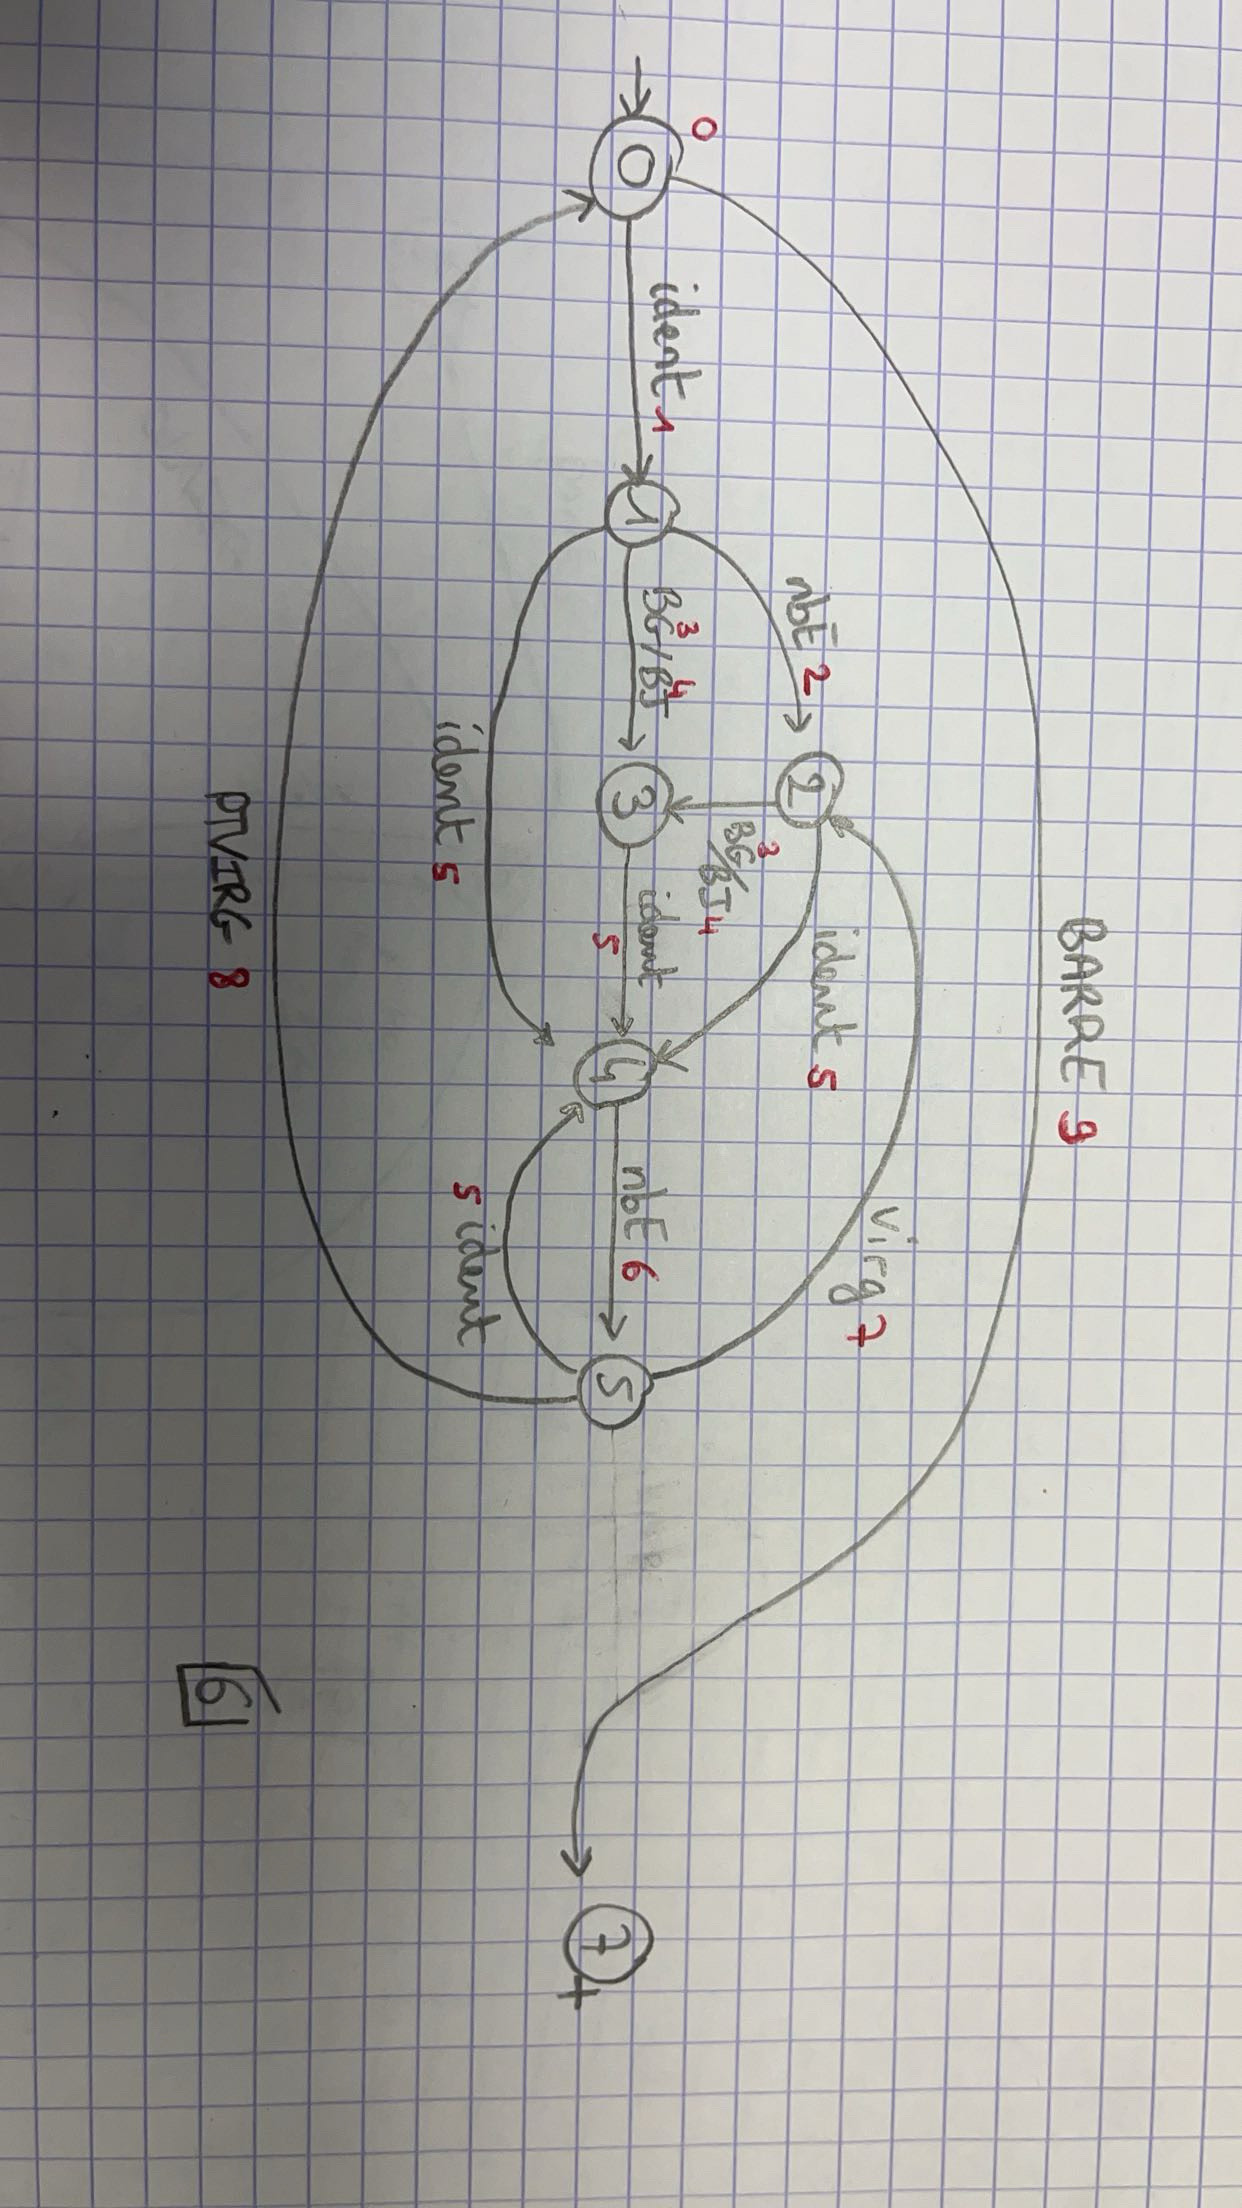 BARRE 9
virg 7
nbE 2
2
ident 5
3
BG/BJ 4
0
0
ident 1
1
3 4
BG/BJ
3
ident
5
4
nbE 6
5
7+
ident 5
5 ident
PTVIRG 8
6